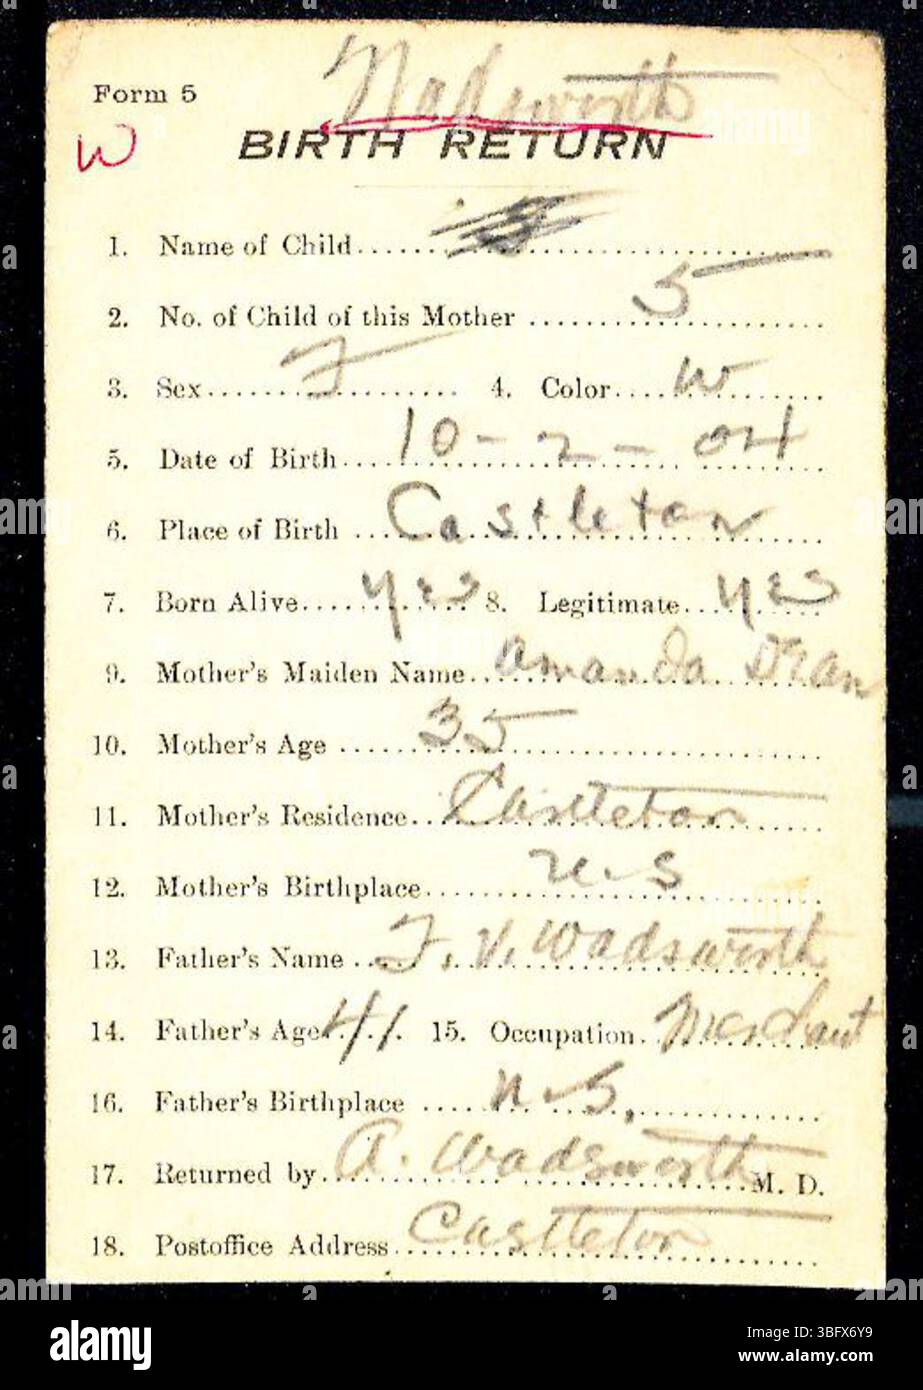 Wadsworth
Form 5
W
BIRTH RETURN
1. Name of Child
2. No. of Child of this Mother 5
3. Sex F 4. Color W
5. Date of Birth 10-2-04
6. Place of Birth Castleton
7. Born Alive yes 8. Legitimate yes
9. Mother's Maiden Name Amanda
10. Mother's Age 35
11. Mother's Residence Castleton
12. Mother's Birthplace U.S
13. Father's Name F. V. Wadsworth
14. Father's Age 41 15. Occupation Merchant
16. Father's Birthplace U.S.
17. Returned by A. Wadsworth M. D.
18. Postoffice Address Castleton
alamy
Image ID: 3BFX6Y9
www.alamy.com